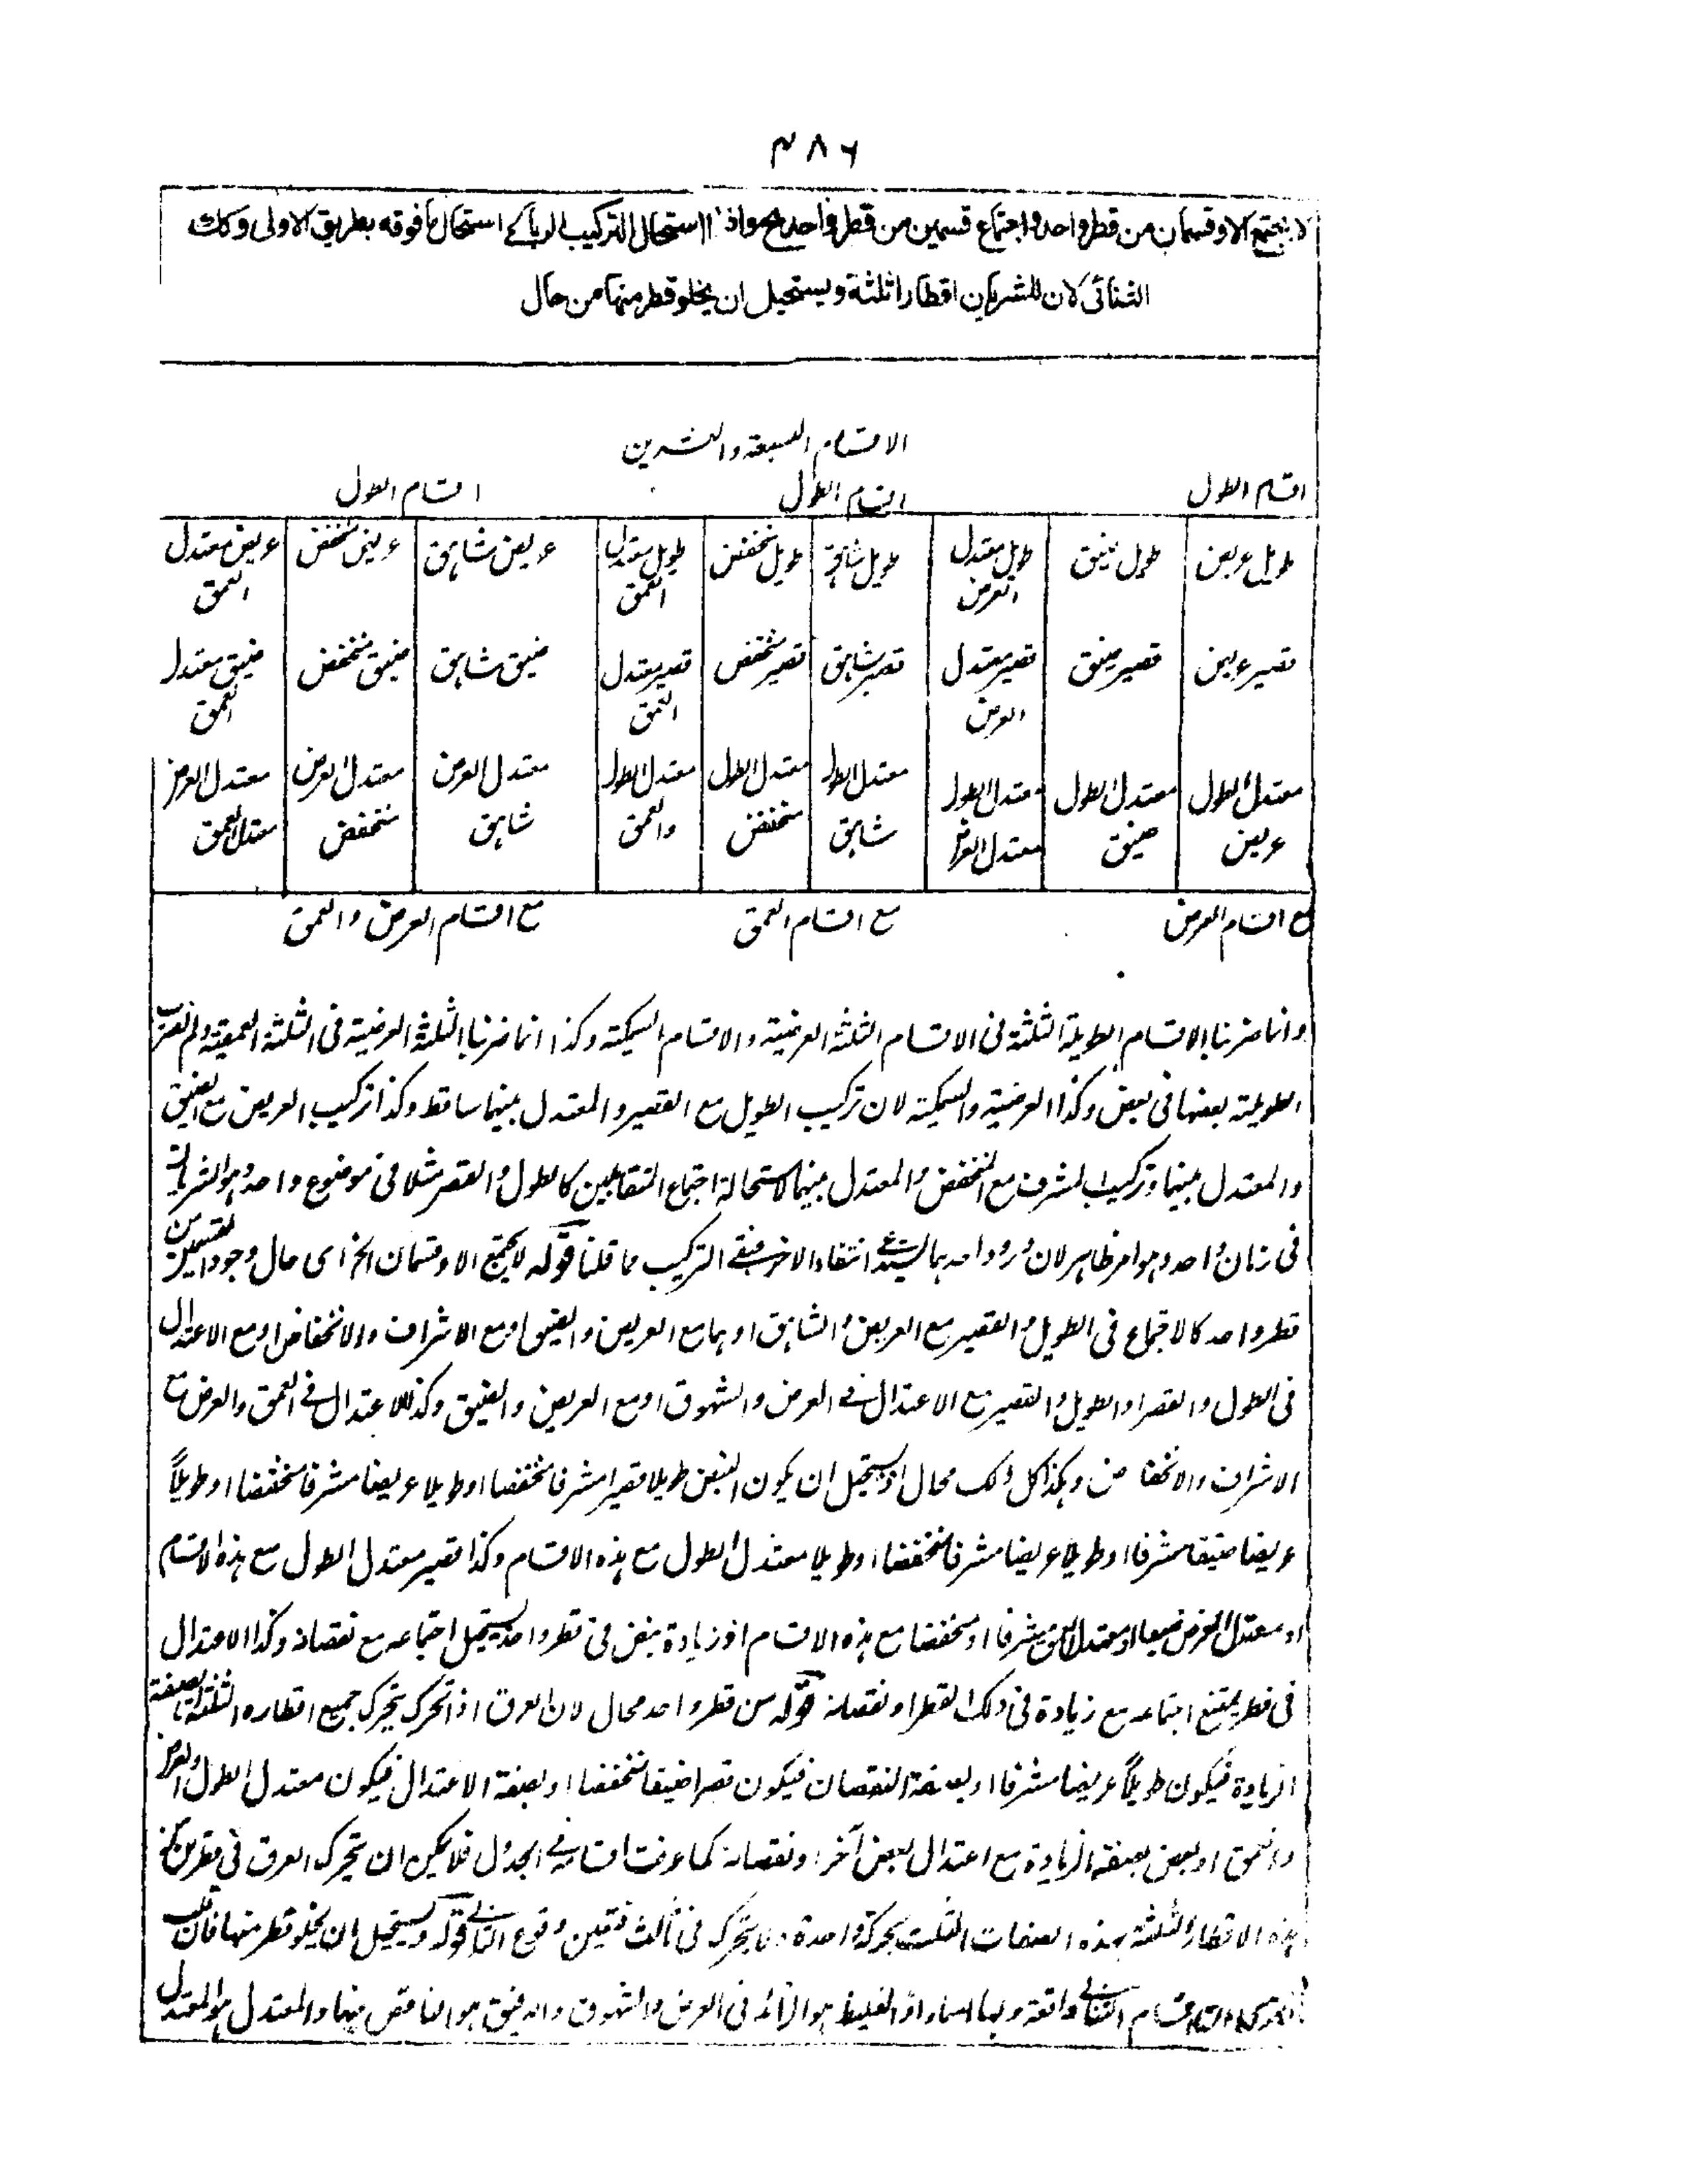 ۴۸۶
لا يجتمع الا وقسمان من قطر واحد واجتماع قسمين من قطر واحد مح واذا استحال التركيب الرباعى استحال ما فوقه بطريق الاولى وكك
الثنائى لان للشريان اقطارا ثلثة ويستحيل ان يخلو قطر منها من حال
الاقسام السبعة والعشرين
اقسام الطول
اقسام الطول
اقسام الطول
طويل عريض
طويل ضيق
طويل معتدل العرض
طويل شاهق
طويل منخفض
طويل معتدل العمق
عريض شاهق
عريض منخفض
عريض معتدل العمق
قصير عريض
قصير ضيق
قصير معتدل العرض
قصير شاهق
قصير منخفض
قصير معتدل العمق
ضيق شاهق
ضيق منخفض
ضيق معتدل العمق
معتدل الطول عريض
معتدل الطول ضيق
معتدل الطول معتدل العرض
معتدل الطول شاهق
معتدل الطول منخفض
معتدل الطول والعمق
معتدل العرض شاهق
معتدل العرض منخفض
معتدل العرض معتدل العمق
مع اقسام العرض
مع اقسام العمق
مع اقسام العرض والعمق
وانما ضربنا الاقسام الطويلة الثلثة فى الاقسام الثلثة العرضية والاقسام السمكية وكذا انما ضربنا الثلثة العرضية فى الثلثة العمقية ولم نضرب
الطولية بعضها فى بعض وكذا العرضية والسمكية لان تركيب الطويل مع القصير والمعتدل بينهما ساقط وكذا تركيب العريض مع الضيق
والمعتدل بينهما وتركيب المشرف مع المنخفض والمعتدل بينهما لاستحالة اجتماع المتقابلين كالطول والقصر مثلا فى موضوع واحد وهو الشريان
فى زمان واحد وهو امر ظاهر لان ورود احدهما يستدعى انتفاء الاخر فبقى التركيب مما قلنا قوله لا يجتمع الا وقسمان الخ اى حال وجود القسمين من
قطر واحد كالاجتماع فى الطويل والقصير مع العريض والشاهق او هما مع العريض والضيق او مع الاشراف والانخفاض او مع الاعتدال
فى الطول والقصر او الطويل والقصير مع الاعتدال فى العرض والشهوق او مع العريض والضيق وكذا الاعتدال فى العمق والعرض مع
الاشراف والانخفاض وهكذا كل ذلك محال اذ يستحيل ان يكون النبض طويلا قصيرا مشرفا منخفضا او طويلا عريضا مشرفا منخفضا او طويلاً
عريضا ضيقا مشرفا او طويلا عريضا مشرفا منخفضا او طويلا معتدل الطول مع هذه الاقسام وكذا قصير معتدل الطول مع هذه الاقسام
او معتدل العرض ضيقا او معتدل العمق مشرفا او منخفضا مع هذه الاقسام اذ زيادة نبض فى قطر واحد يستحيل اجتماعه مع نقصانه وكذا الاعتدال
فى قطر يمتنع اجتماعه مع زيادة فى ذلك القطر او نقصانه قوله من قطر واحد محال لان العرق اذا تحرك يتحرك جميع اقطاره الثلثة بصفة
الزيادة فيكون طويلاً عريضا مشرفا او بصفة النقصان فيكون قصيرا ضيقا منخفضا او بصفة الاعتدال فيكون معتدل الطول والعرض
والعمق او بعض بصفة الزيادة مع اعتدال لبعض آخر او نقصانه كما عرفت اقسامه فى الجدول فلا يمكن ان يتحرك العرق فى قطرين من
هذه الاقطار الثلثة بهذه الصفات الثلث بحركة واحدة ولا يتحرك فى ثالث فتعين وقوع الثنائى قوله ويستحيل ان يخلو قطر منها فان قلت
الثنائى واقعة ولها اسماء اذ الغليظ هو الزائد فى العرض والشهوق والدقيق هو الناقص منهما والمعتدل هو المعتدل